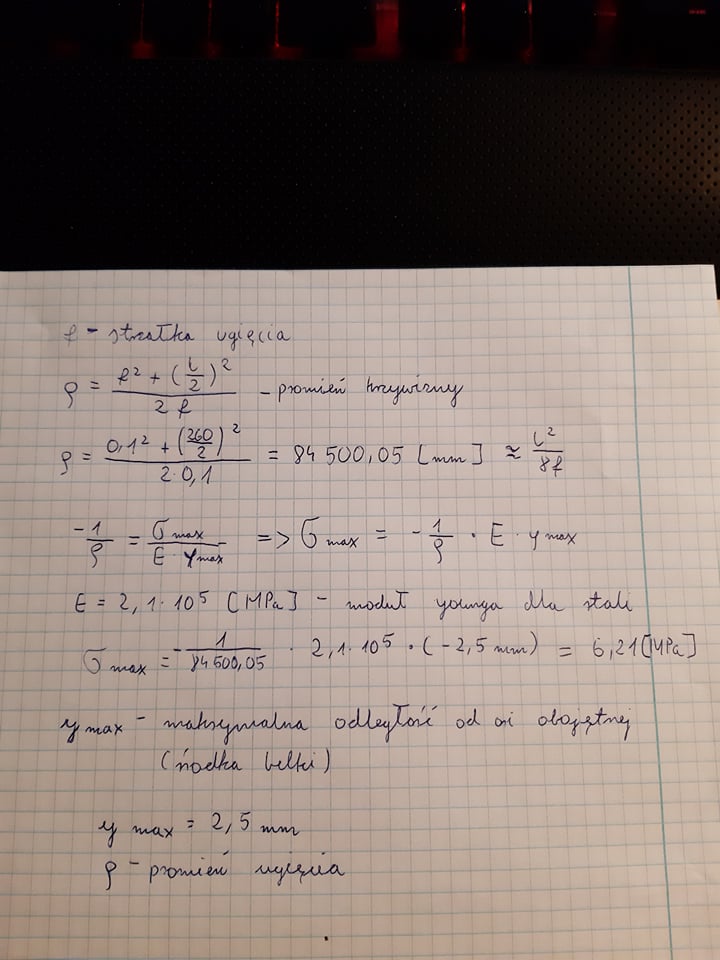 f - strzałka ugięcia
ρ = (f² + (l/2)²) / (2f) - promień krzywizny
ρ = (0,1² + (260/2)²) / (2·0,1) = 84 500,05 [mm] ≈ l²/8f
-1/ρ = σmax / (E·ymax) => σmax = -1/ρ · E · ymax
E = 2,1·10⁵ [MPa] - moduł younga dla stali
σmax = -1/84500,05 · 2,1·10⁵ · (-2,5 mm) = 6,21 [MPa]
ymax - maksymalna odległość od osi obojętnej
(środka belki)
ymax = 2,5 mm
ρ - promień ugięcia